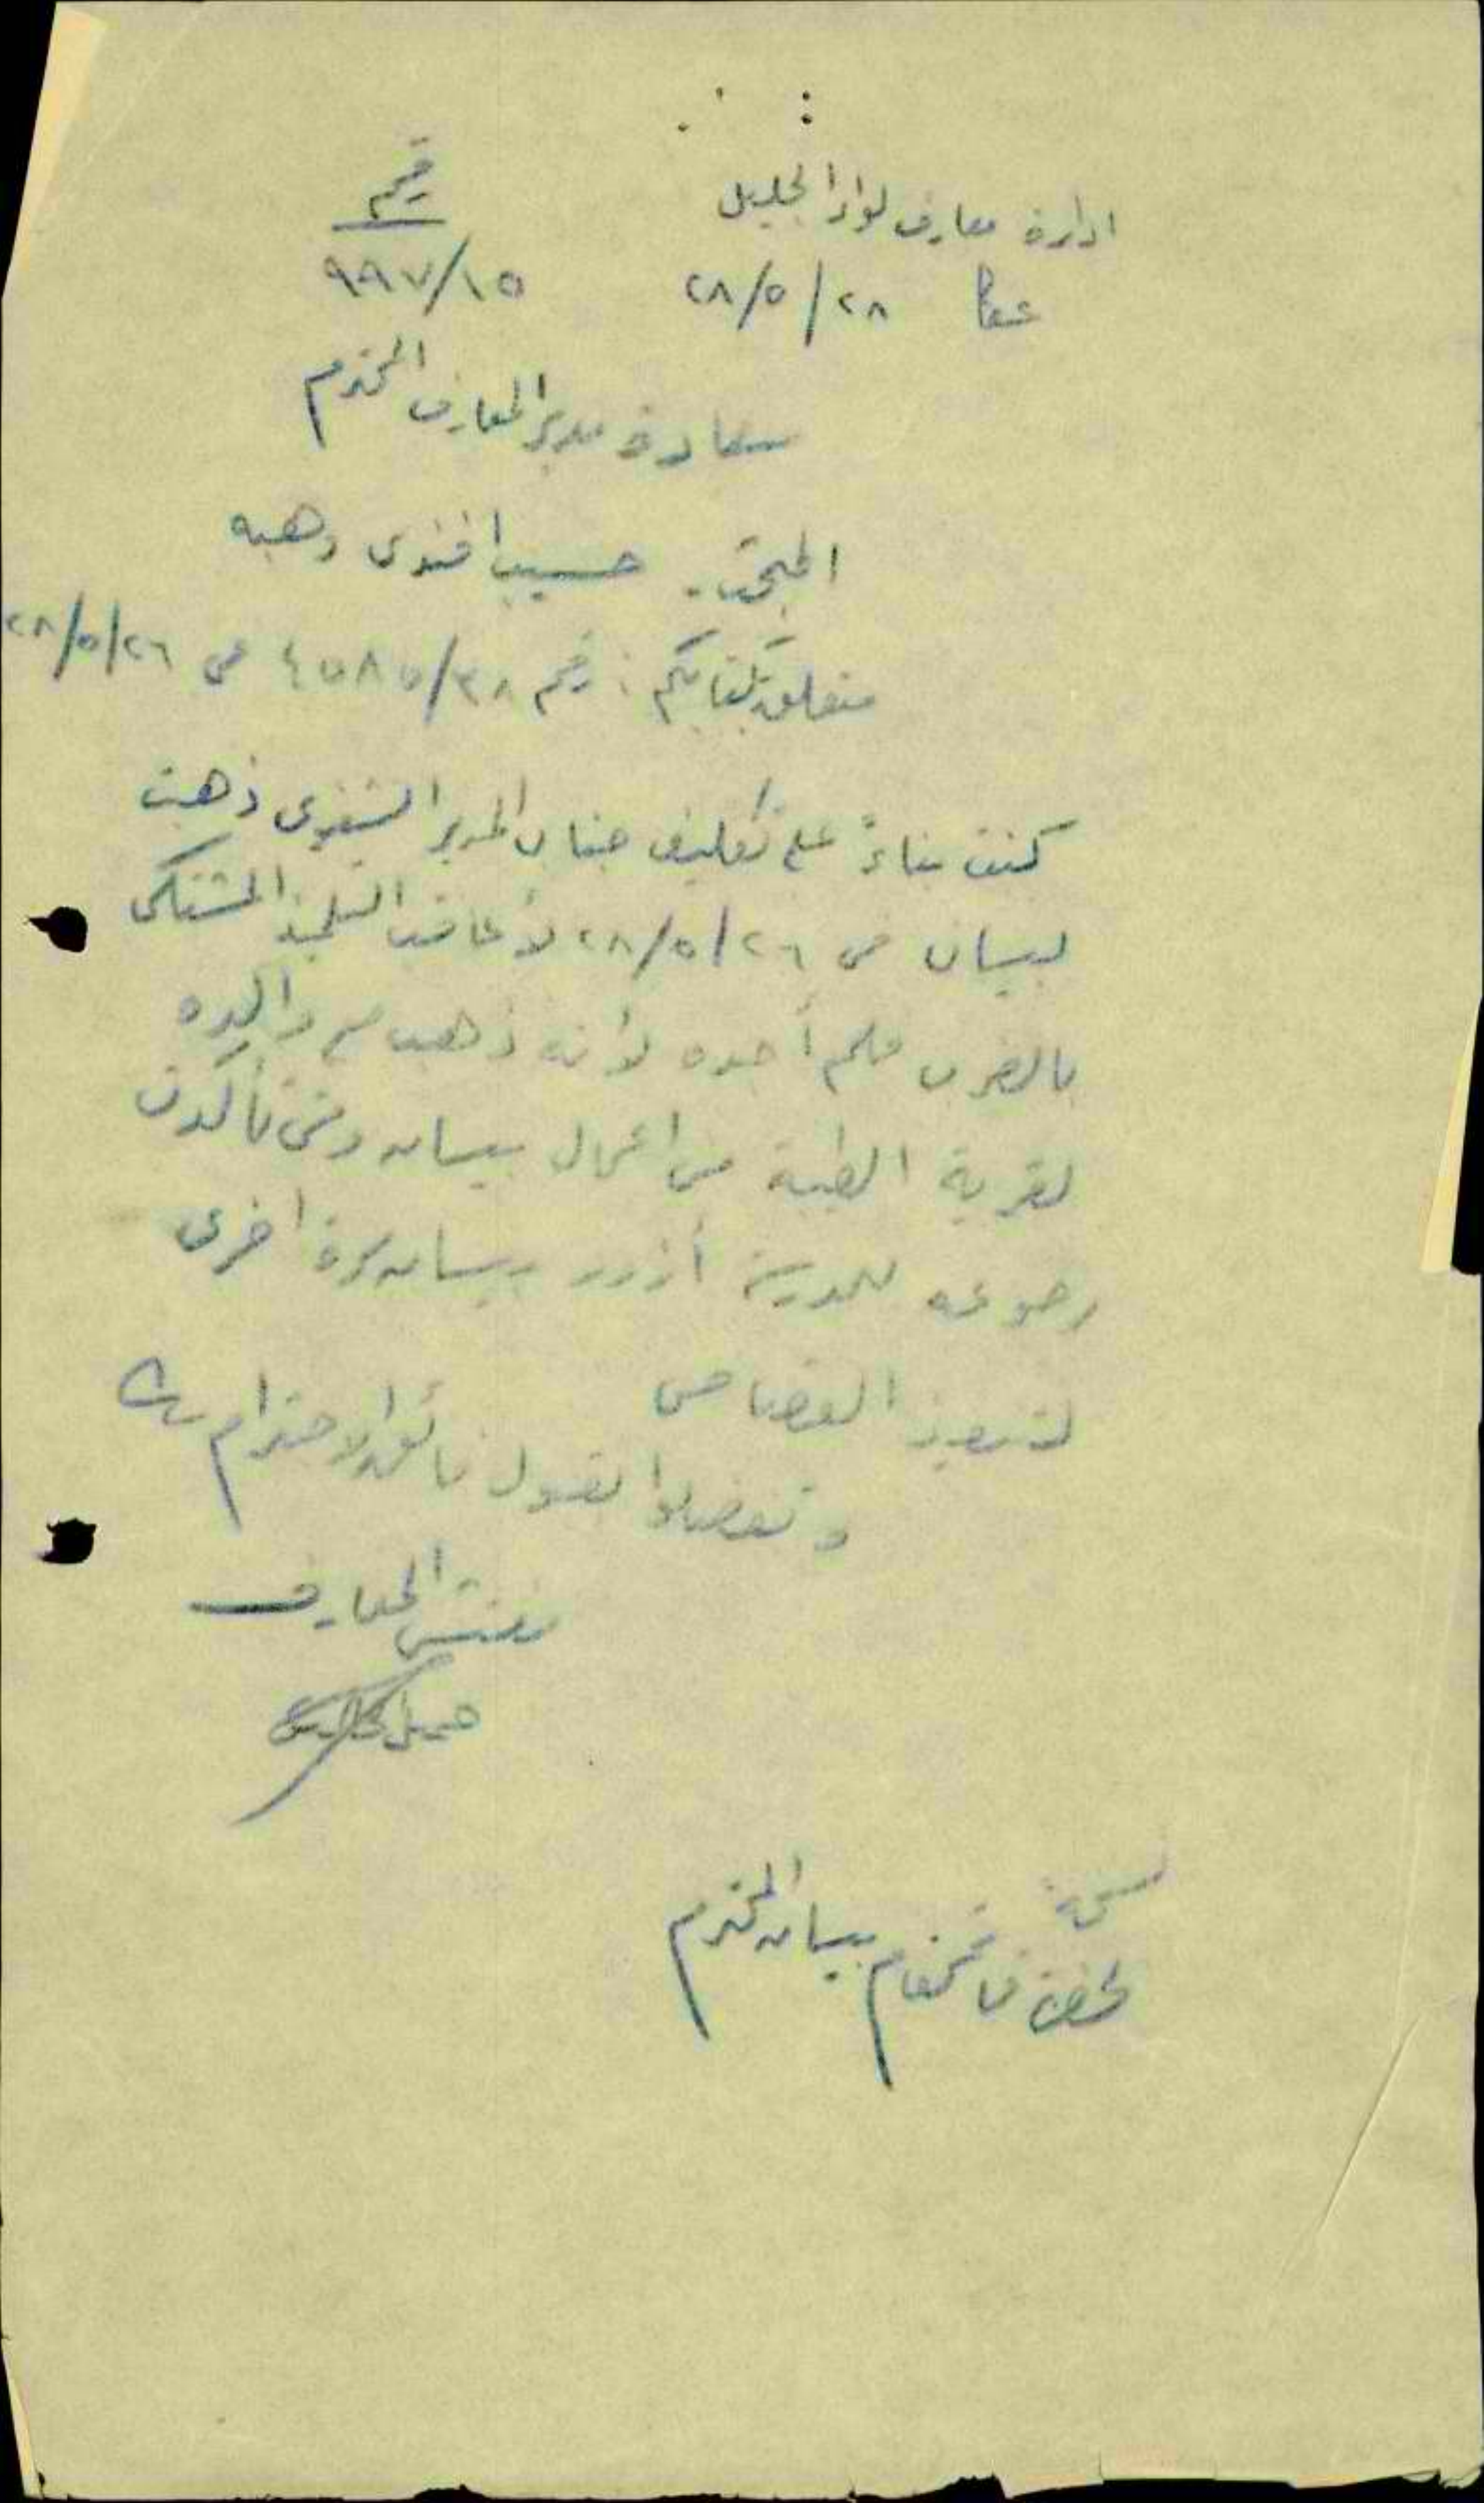 ادارة معارف لواء الجليل
رقم
عكا ٢٨/٥/٢٨
٩٩٧/١٥
سعادة مدير المعارف المحترم
المبحث. حسيب افندي وهبه
متعلق بكتابكم: رقم ٤٥٨٥/٣٨ في ٢٨/٥/٢٦
كنت بناءً على تكليف جناب المدير الشفوي ذهبت
لبيسان في ٢٨/٥/٢٦ لأعاقب التلميذ المشتكى
بالضرب فلم أجده لأنه ذهب مع والده
لقرية الطيبة من اعمال بيسان ومتى تأكدت
رجوعه للمدرسة أزور بيسان مرة اخرى
لتنفيذ القصاص
وتفضلوا بقبول فائق الاحترام
مفتش المعارف
نسخة
لحضرة قائمقام بيسان المحترم